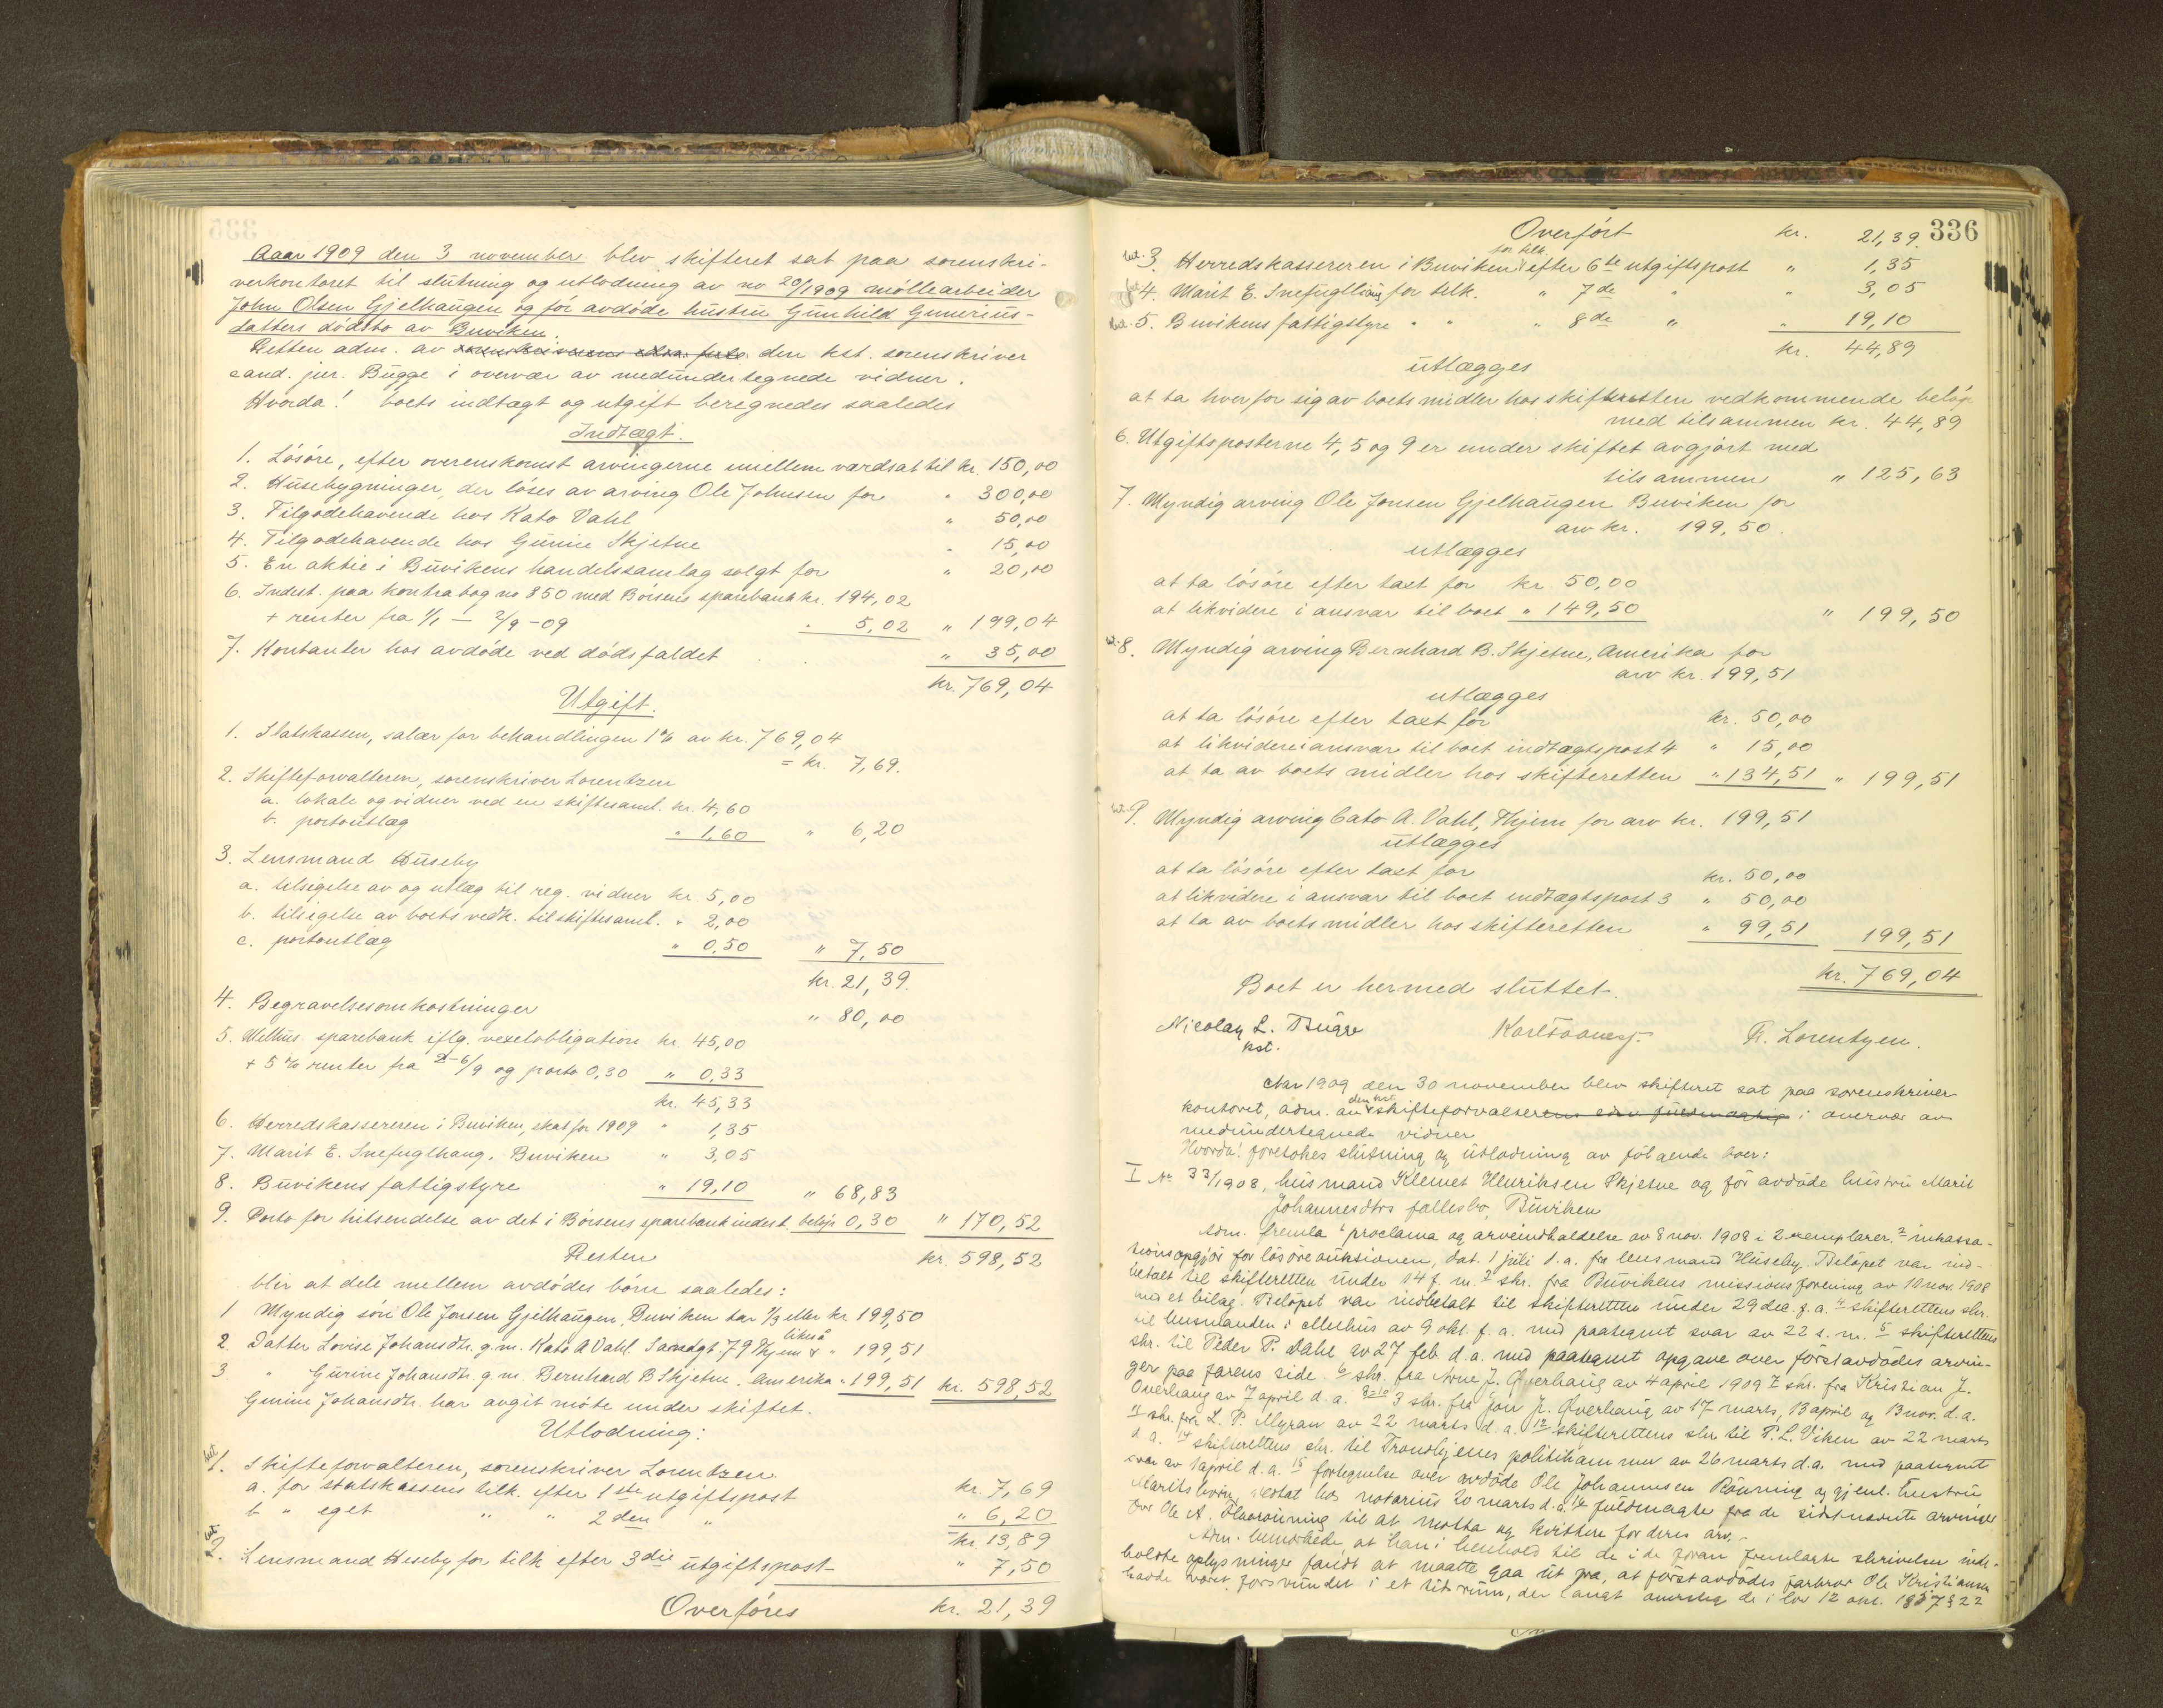 Aaar 1909 den 3 november blev skifteret sat paa sorenskri-
verkontoret til slutning og utlodning av no 20/1909 møllearbeider
John Olsen Gjelhaugen og før avdøde hustru Gunhild Gunerius-
datters dødsbo av Buviken.
Retten adm. av den kst. sorenskriver
cand. jur. Bugge i overvær av medundertegnede vidner.
Hvorda! boets indtægt og utgift beregnedes saaledes
Indtægt.
1. Løsøre, efter overenskomst arvingerne imellem værdsat til kr. 150,00
2. Husebygninger, der løses av arving Ole Johnsen for " 300,00
3. Tilgodehavende hos Kato Vahl " 50,00
4. Tilgodehavende hos Gurine Skjetne " 15,00
5. En aktie i Buvikens handelssamlag solgt for " 20,00
6. Indest. paa kontrabog no 850 med Børsens sparebank kr. 194,02
+ renter fra 1/1 – 2/9 -09 " 5,02 " 199,04
7. Kontanter hos avdøde ved dødsfaldet " 35,00
kr. 769,04
Utgift.
1. Statskassen, salær for behandlingen 1% av kr. 769,04
= kr. 7,69.
2. Skifteforvalteren, sorenskriver Lorentzen
a. lokale og vidner ved en skiftesaml. kr. 4,60
b. portoutlæg " 1,60 " 6,20
3. Lensmand Huseby
a. tilsigelse av og utlæg til reg. vidner kr. 5,00
b. tilsigelse av boets vedk. til skiftesaml. " 2,00
c. portoutlæg " 0,50 " 7,50
kr. 21,39.
4. Begravelsesomkostninger " 80,00
5. Melhus sparebank iflg. vexelobligation kr. 45,00
+ 5% renter fra 6/9 og porto 0,30 " 0,33
kr. 45,33
6. Herredskassereren i Buviken, skat for 1909 " 1,35
7. Marit E. Snefuglhaug, Buviken " 3,05
8. Buvikens fattigstyre " 19,10 " 68,83
9. Porto for hitsendelse av det i Børsens sparebank indest. beløp 0,30 " 170,52
Resten kr. 598,52
blir at dele mellem avdødes børn saaledes:
1 Myndig søn Ole Jonsen Gjelhaugen, Buviken tar 1/3 eller kr. 199,50
2. Datter Lovise Johansdtr. g.m. Kato A Vahl 79 likeså " 199,51
3 " Gurine Johansdtr. g.m. Bernhard B Skjetne. Amerika " 199,51 kr. 598,52
Gurine Johansdtr. har avgit møte under skiftet.
Utlodning:
1. Skifteforvalteren, sorenskriver Lorentzen
a. for statskassens tilk. efter 1ste utgiftspost kr. 7,69
b " eget " " 2den " " 6,20
kr. 13,89
2. Lensmand Heseby for tilk efter 3die utgiftspost " 7,50
Overføres kr. 21,39
336
Overført kr. 21,39.
3. Herredskassereren i Buviken for tilk. efter 6te utgiftspost " 1,35
4. Marit E. Snefuglhaug for tilk. " 7de " " 3,05
5. Buvikens fattigstyre " " " 8de " " 19,10
kr. 44,89
utlægges
at ta hver for sig av boets midler hos skifteretten vedkommende beløp
med tilsammen kr. 44,89
6. Utgiftsposterne 4, 5 og 9 er under skiftet avgjort med
tilsammen " 125,63
7. Myndig arving Ole Jonsen Gjelhaugen Buviken for
arv kr. 199,50.
utlægges
at ta løsøre efter taxt for kr. 50,00
at likvidere i ansvar til boet " 149,50 " 199,50
8. Myndig arving Bernhard B. Skjetne, Amerika for
arv kr. 199,51
utlægges
at ta løsøre efter taxt for kr. 50,00
at likvidere i ansvar til boet indtægtspost 4 " 15,00
at ta av boets midler hos skifteretten " 134,51 " 199,51
9. Myndig arving Cato A. Vahl, for arv kr. 199,51
utlægges
at ta løsøre efter taxt for kr. 50,00
at likvidere i ansvar til boet indtægtspost 3 " 50,00
at ta av boets midler hos skifteretten " 99,51 199,51
kr. 769,04
Boet er hermed sluttet.
Nicolay L. Bugge
kst.
Fr. Lorentzen.
Aar 1909 den 30 november blev skifteret sat paa sorenskriver
kontoret, adm. av den kst. skifteforvalteren i overvær av
medundertegnede vidner
Hvorda! foretokes slutning og utlodning av følgende boer:
I Nr 33/1908, husmand Klemet Henriksen Skjetne og før avdøde hustru Marit
Johannesdtrs fællesbo, Buviken
Adm. fremla 1 proclama og arveindkaldelse av 8 nov. 1908 i 2 exemplarer. 2 inkassa-
tionsopgjør for løsøreauktionen, dat. 1 juli d.a. fra lensmand Huseby. Beløpet var ind-
betalt til skifteretten under 14 f. m. 3 skr. fra Buvikens missionsforening av 10 nov. 1908
med et bilag. Beløpet var indbetalt til skifteretten under 29 dec. f.a. 4 skifterettens skr.
til lensmanden i Melhus av 9 okt. f.a. med paategnet svar av 22 s.m. 5 skifterettens
skr. til Peder P. Dahl av 27 feb d.a. med paategnet opgave over førstavdødes arvin-
ger paa farens side. 6 skr. fra Arne J. Øverhaug av 4 april 1909 7 skr. fra Kristian J.
Overhaug av 7 april d.a. 8-10 3 skr. fra Jon J. Øverhaug av 17 marts, 13 april og 13 nov. d.a.
11 skr. fra L. P. Myran av 22 marts d.a. 12 skifterettens skr til P. L. Viken av 22 marts
d.a. 14 skifterettens skr. til Trondhjems politikammer av 26 marts d.a. med paategnet
svar av 1 april d.a. 15 fortegnelse over avdøde Ole Johannesen Rønning og gjenl. hustru
Marits hos notarius 20 marts d.a. 16 fuldmagte fra de sidstnævnte arvinger
for Ole A. til at motta og kvittere for deres arv.-
Adm. bemerkede, at han i henhold til de i de foran fremlagte skrivelser inde-
holdte oplysninger fandt at maatte gaa ut fra, at førstavdødes farbror Ole Kristiansen
havde været forsvundet i et tidsrum, der langt overstiger de i lov 12 okt. 1857 § 22